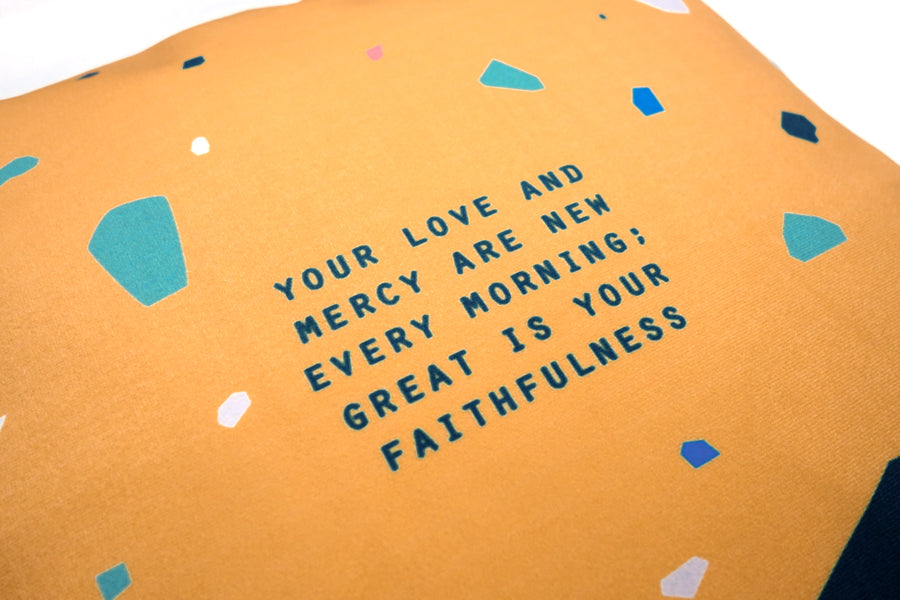 YOUR LOVE AND
MERCY ARE NEW
EVERY MORNING;
GREAT IS YOUR
FAITHFULNESS